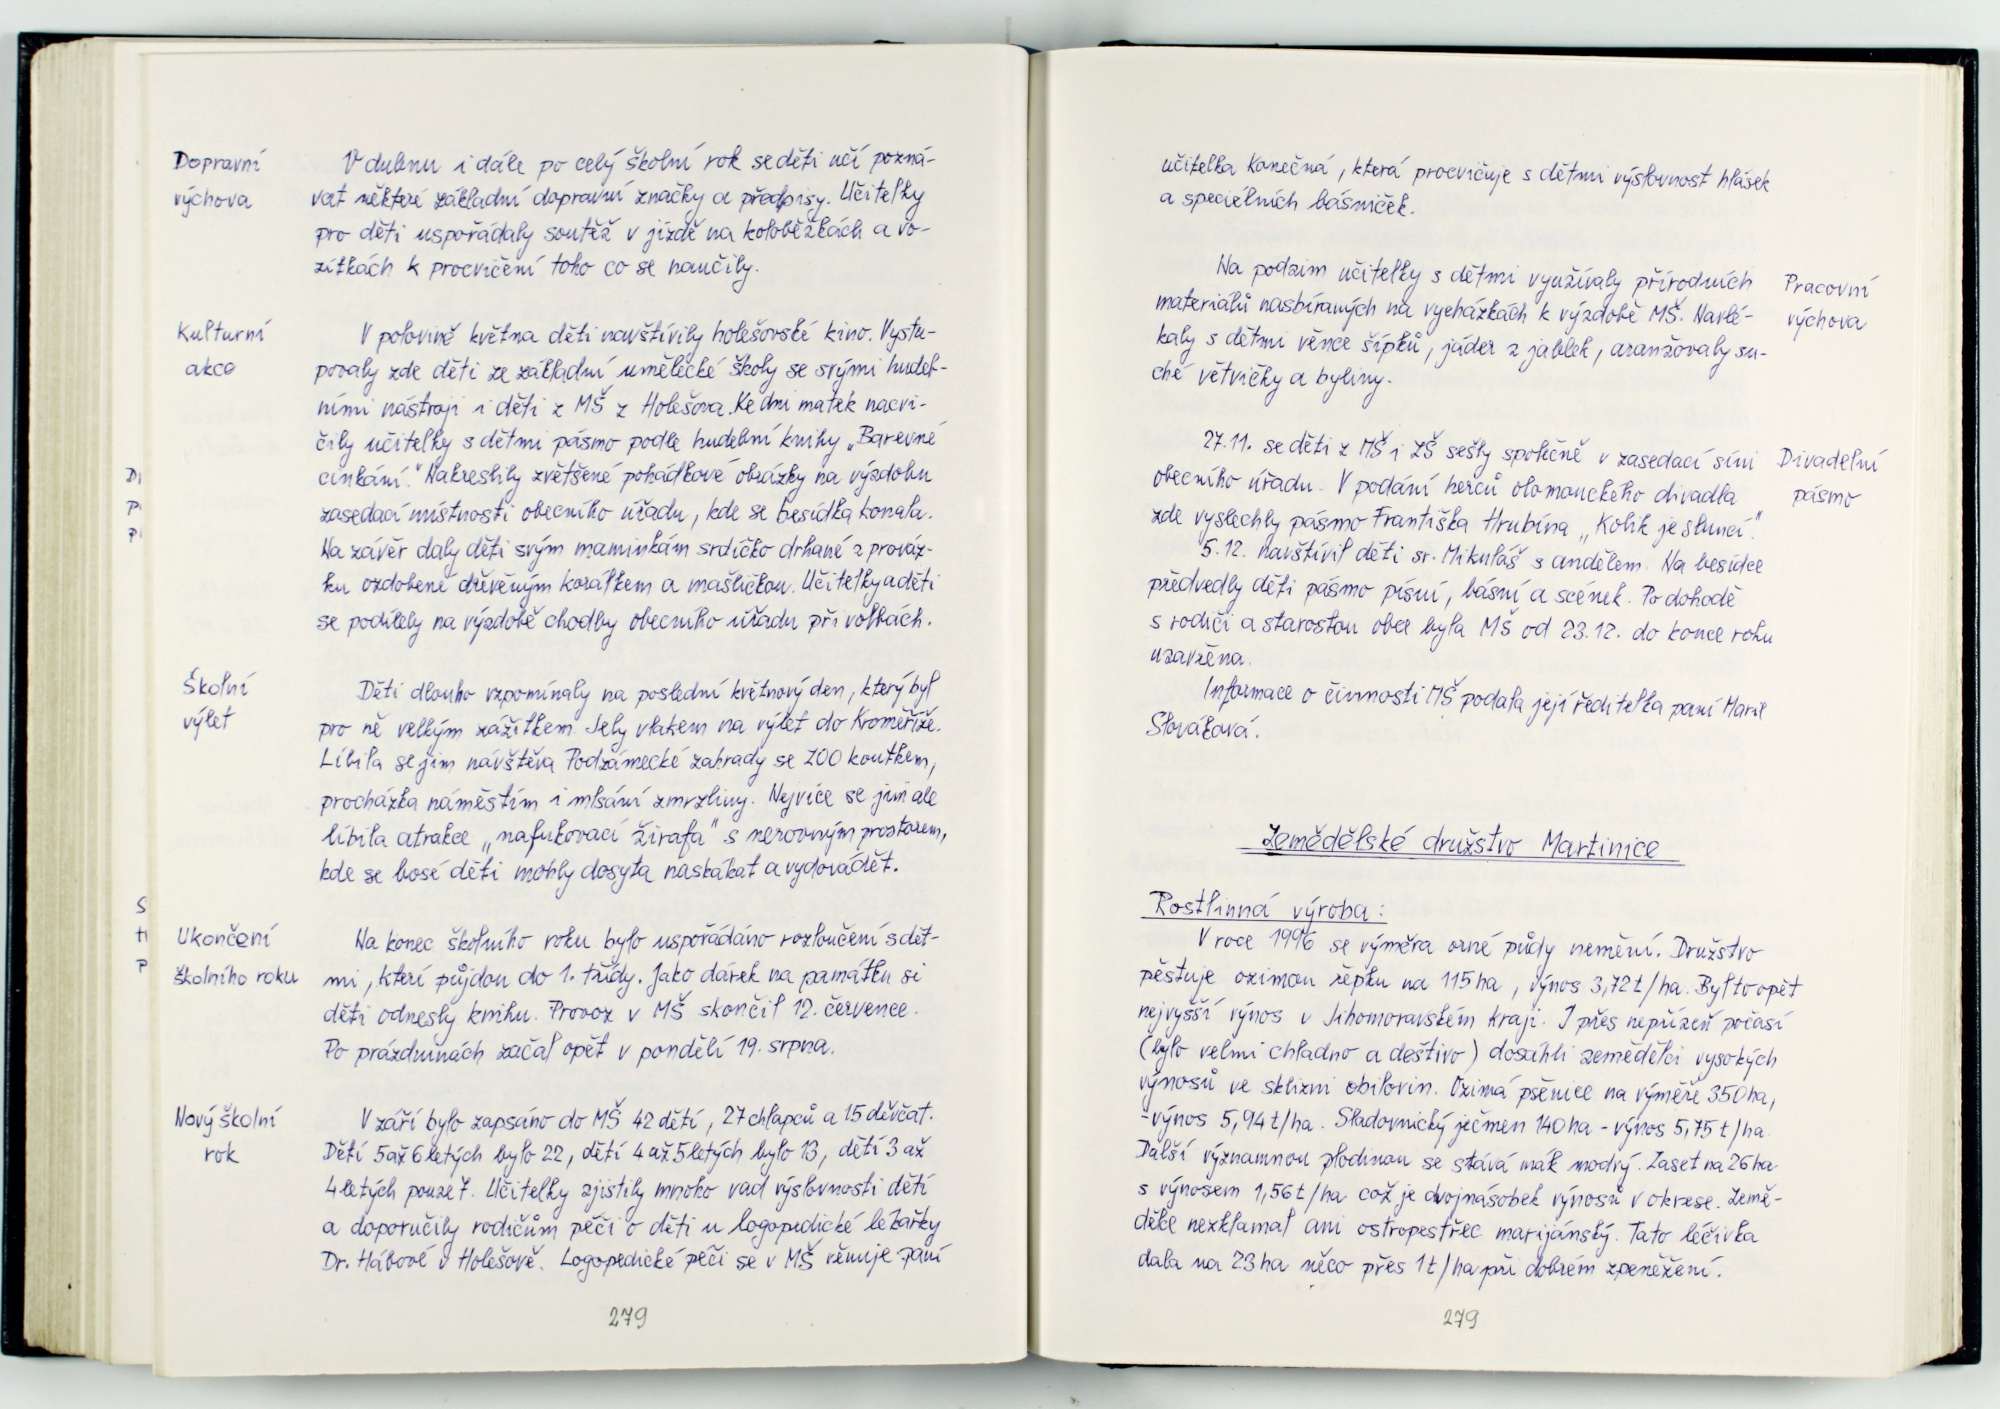 Dopravní
výchova
V dubnu i dále po celý školní rok se děti učí pozná-
vat některé základní dopravní značky a předpisy. Učitelky
pro děti uspořádaly soutěž v jízdě na koloběžkách a vo-
zítkách k procvičení toho co se naučily.
Kulturní
akce
V polovině května děti navštívily holešovské kino. Vystu-
povaly zde děti ze základní umělecké školy se svými hudeb-
ními nástroji i děti z MŠ z Holešova. Ke dni matek nacvi-
čily učitelky s dětmi pásmo podle hudební knihy „Barevné
cinkání." Nakreslily zvětšené pohádkové obrázky na výzdobu
zasedací místnosti obecního úřadu, kde se besídka konala.
Na závěr daly děti svým maminkám srdíčko drhané z prováz-
ku ozdobené dřevěným korálkem a mašličkou. Učitelky a děti
se podílely na výzdobě chodby obecního úřadu při volbách.
Školní
výlet
Děti dlouho vzpomínaly na poslední květnový den, který byl
pro ně velkým zážitkem. Jely vlakem na výlet do Kroměříže.
Líbila se jim návštěva Podzámecké zahrady se ZOO koutkem,
procházka náměstím i mlsání zmrzliny. Nejvíce se jim ale
líbila atrakce „nafukovací žirafa" s nerovným prostorem,
kde se bosé děti mohly dosyta naskákat a vydovádět.
Ukončení
školního roku
Na konec školního roku bylo uspořádáno rozloučení s dět-
mi, kteří půjdou do 1. třídy. Jako dárek na památku si
děti odnesly knihu. Provoz v MŠ skončil 12. července.
Po prázdninách začal opět v pondělí 19. srpna.
Nový školní
rok
V září bylo zapsáno do MŠ 42 dětí, 27 chlapců a 15 děvčat.
Dětí 5 až 6 letých bylo 22, dětí 4 až 5 letých bylo 13, dětí 3 až
4 letých pouze 7. Učitelky zjistily mnoho vad výslovnosti dětí
a doporučily rodičům péči o děti u logopedické lékařky
Dr. Hábové v Holešově. Logopedické péči se v MŠ věnuje paní
279
učitelka Konečná, která procvičuje s dětmi výslovnost hlásek
a speciélních básniček.
Na podzim učitelky s dětmi využívaly přírodních
materiálů nasbíraných na vycházkách k výzdobě MŠ. Navlé-
kaly s dětmi věnce šípků, jáder z jablek, aranžovaly su-
ché větvičky a byliny.
Pracovní
výchova
27.11. se děti z MŠ i ZŠ sešly společně v zasedací síni
obecního úřadu. V podání herců olomouckého divadla
zde vyslechly pásmo Františka Hrubína „Kolik je sluncí".
Divadelní
pásmo
5.12. navštívil děti sv. Mikuláš s andělem. Na besídce
předvedly děti pásmo písní, básní a scének. Po dohodě
s rodiči a starostou obce byla MŠ od 23.12. do konce roku
uzavřena.
Informace o činnosti MŠ podala její ředitelka paní Marie
Slováková.
Zemědělské družstvo Martinice
Rostlinná výroba:
V roce 1996 se výměra orné půdy nemění. Družstvo
pěstuje ozimou řepku na 115 ha, výnos 3,72 t/ha. Byl to opět
nejvyšší výnos v Jihomoravském kraji. I přes nepřízeň počasí
(bylo velmi chladno a deštivo) dosáhli zemědělci vysokých
výnosů ve sklizni obilovin. Ozimá pšenice na výměře 350 ha,
-výnos 5,94 t/ha. Sladovnický ječmen 140 ha - výnos 5,75 t/ha.
Další významnou plodinou se stává mák modrý. Zaset na 26 ha
s výnosem 1,56 t/ha což je dvojnásobek výnosů v okrese. Země-
dělce nezklamal ani ostropestřec marijánský. Tato léčivka
dala na 23 ha něco přes 1 t/ha při dobrém zpeněžení.
279